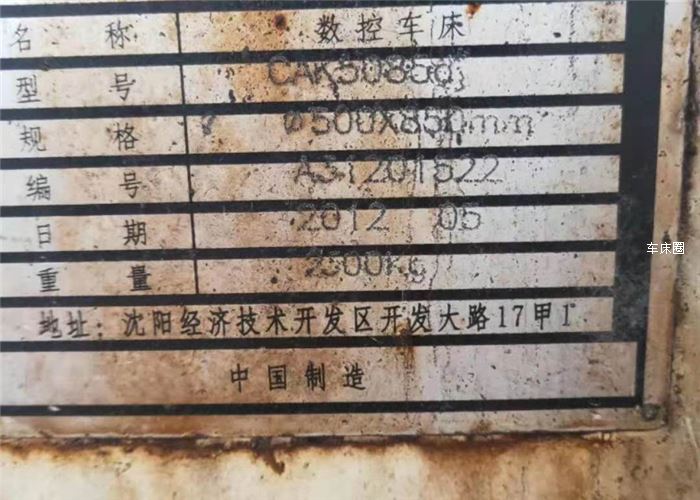 名称 数控车床
型号 CAK5085di
规格 Ø500X850mm
编号 A31201522
日期 2012 05
重量 2500Kg
地址: 沈阳经济技术开发区开发大路17甲1
中国制造
车床圈